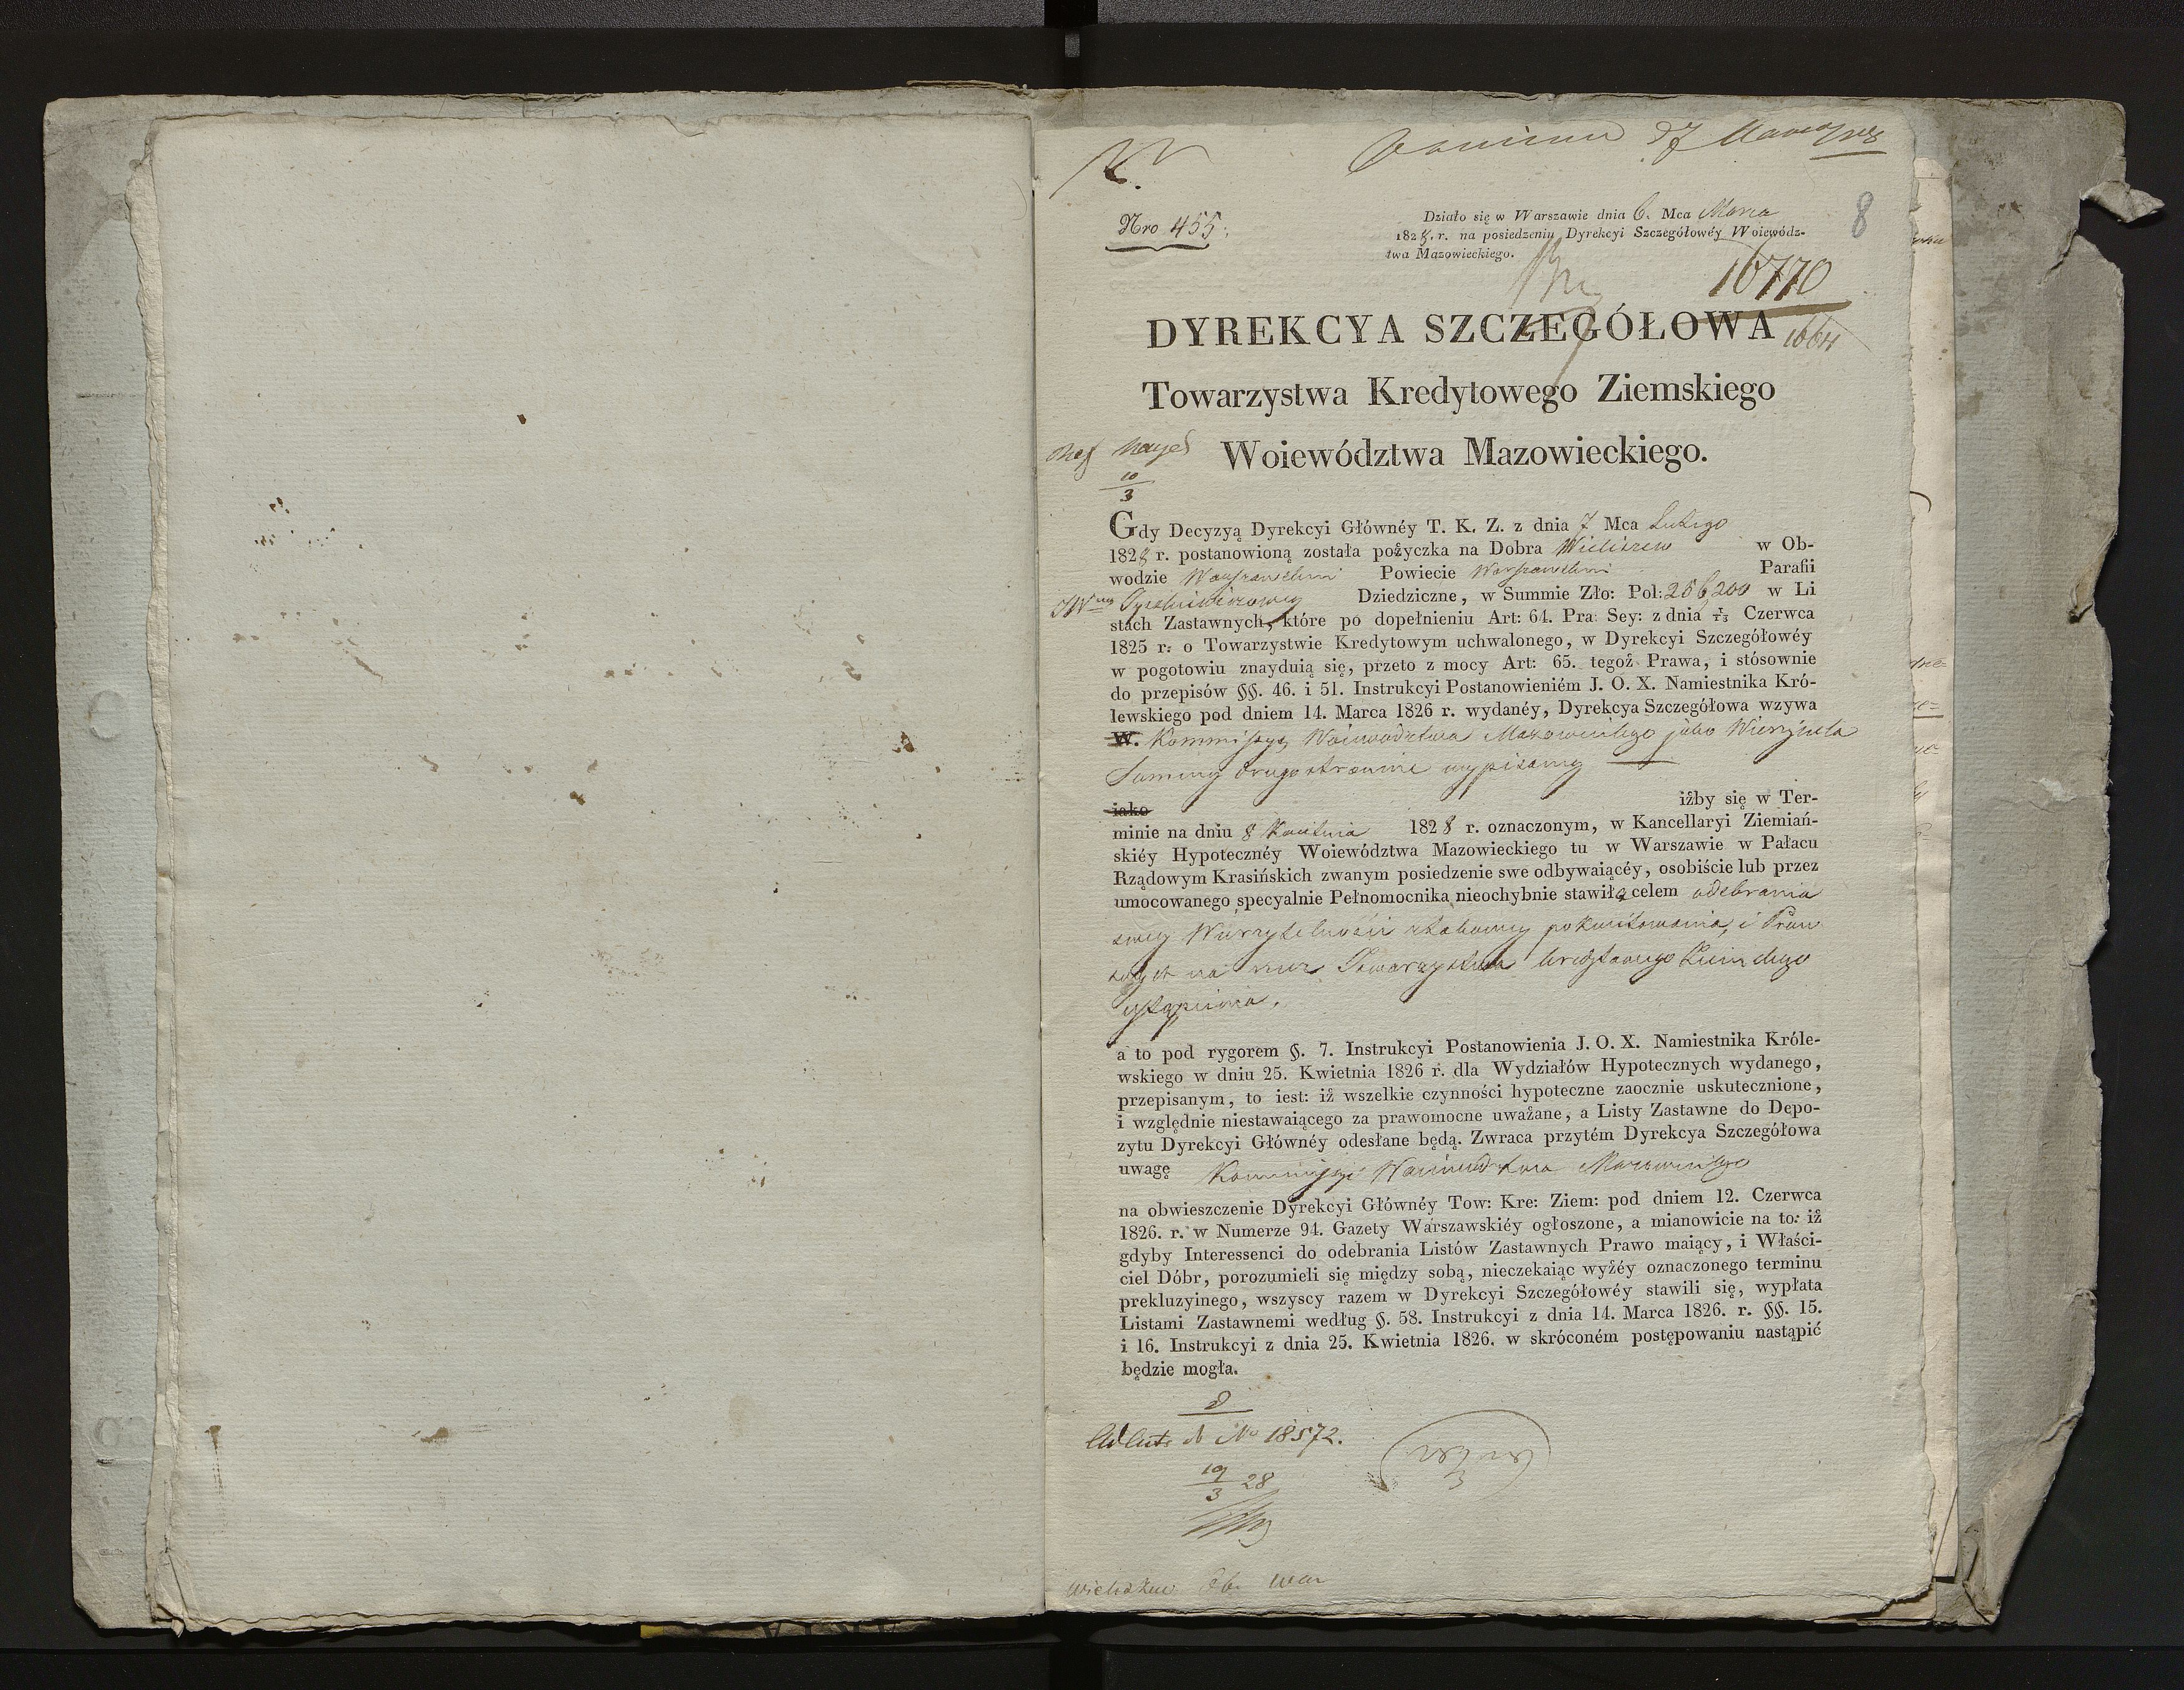 Nro 455.
8
Działo się w Warszawie dnia 6. Mca Marca
1828. r. na posiedzeniu Dyrekcyi Szczegółowéy Woiewódz-
twa Mazowieckiego.
16770
1664
DYREKCYA SZCZEGÓŁOWA
Towarzystwa Kredytowego Ziemskiego
Woiewództwa Mazowieckiego.
10
3
Gdy Decyzyą Dyrekcyi Głównéy T. K. Z. z dnia 7 Mca Lutego
1828 r. postanowioną została pożyczka na Dobra Wieliszew w Ob-
wodzie Warszawskim Powiecie Warszawskim Parafii
Dziedziczne, w Summie Zło: Pol: 256,200 w Li
stach Zastawnych, które po dopełnieniu Art: 64. Pra: Sey: z dnia 1/13 Czerwca
1825 r. o Towarzystwie Kredytowym uchwalonego, w Dyrekcyi Szczegółowéy
w pogotowiu znayduią się, przeto z mocy Art: 65. tegoż Prawa, i stósownie
do przepisów §§. 46. i 51. Instrukcyi Postanowieniém J. O. X. Namiestnika Kró-
lewskiego pod dniem 14. Marca 1826 r. wydanéy, Dyrekcya Szczegółowa wzywa
W. Kommissyą Woiewództwa Mazowieckiego jako Wierzyciela
Summy drugostronnie wypisaney
iako iżby się w Ter-
minie na dniu 8 Kwietnia 1828 r. oznaczonym, w Kancellaryi Ziemiań-
skiéy Hypotecznéy Woiewództwa Mazowieckiego tu w Warszawie w Pałacu
Rządowym Krasińskich zwanym posiedzenie swe odbywaiącéy, osobiście lub przez
umocowanego specyalnie Pełnomocnika nieochybnie stawiła celem odebrania
swey Wierzytelności zakwitowania, i Praw
na rzecz Towarzystwa Kredytowego Ziemskiego
ustąpienia.
a to pod rygorem §. 7. Instrukcyi Postanowienia J. O. X. Namiestnika Króle-
wskiego w dniu 25. Kwietnia 1826 r. dla Wydziałów Hypotecznych wydanego,
przepisanym, to iest: iż wszelkie czynności hypoteczne zaocznie uskutecznione,
i względnie niestawaiącego za prawomocne uważane, a Listy Zastawne do Depo-
zytu Dyrekcyi Głównéy odesłane będą. Zwraca przytém Dyrekcya Szczegółowa
uwagę Kommissyi Woiewództwa Mazowieckiego
na obwieszczenie Dyrekcyi Głównéy Tow: Kre: Ziem: pod dniem 12. Czerwca
1826. r. w Numerze 94. Gazety Warszawskiéy ogłoszone, a mianowicie na to: iż
gdyby Interessenci do odebrania Listów Zastawnych Prawo maiący, i Właści-
ciel Dóbr, porozumieli się między sobą, nieczekaiąc wyżéy oznaczonego terminu
prekluzyinego, wszyscy razem w Dyrekcyi Szczegółowéy stawili się, wypłata
Listami Zastawnemi według §. 58. Instrukcyi z dnia 14. Marca 1826. r. §§. 15.
i 16. Instrukcyi z dnia 25. Kwietnia 1826. w skróconém postępowaniu nastąpić
będzie mogła.
8
No 18572.
10
3 28